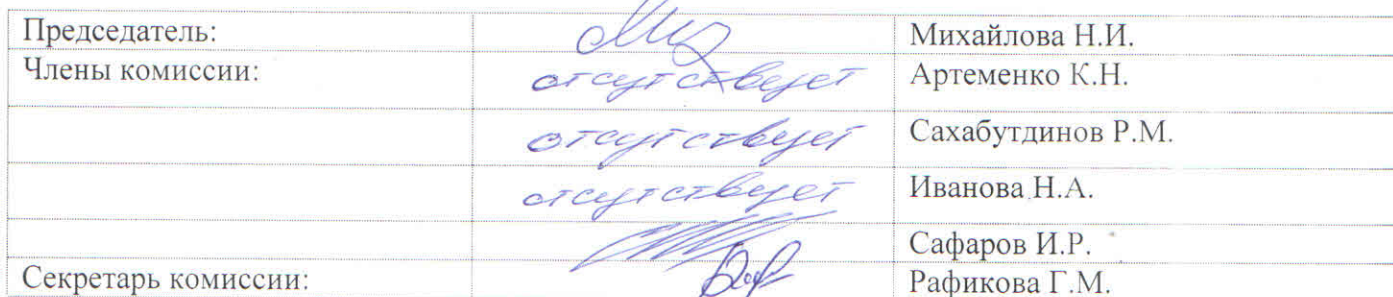 Председатель: Михайлова Н.И.
Члены комиссии: отсутствует Артеменко К.Н.
отсутствует Сахабутдинов Р.М.
отсутствует Иванова Н.А.
Сафаров И.Р.
Секретарь комиссии: Рафикова Г.М.